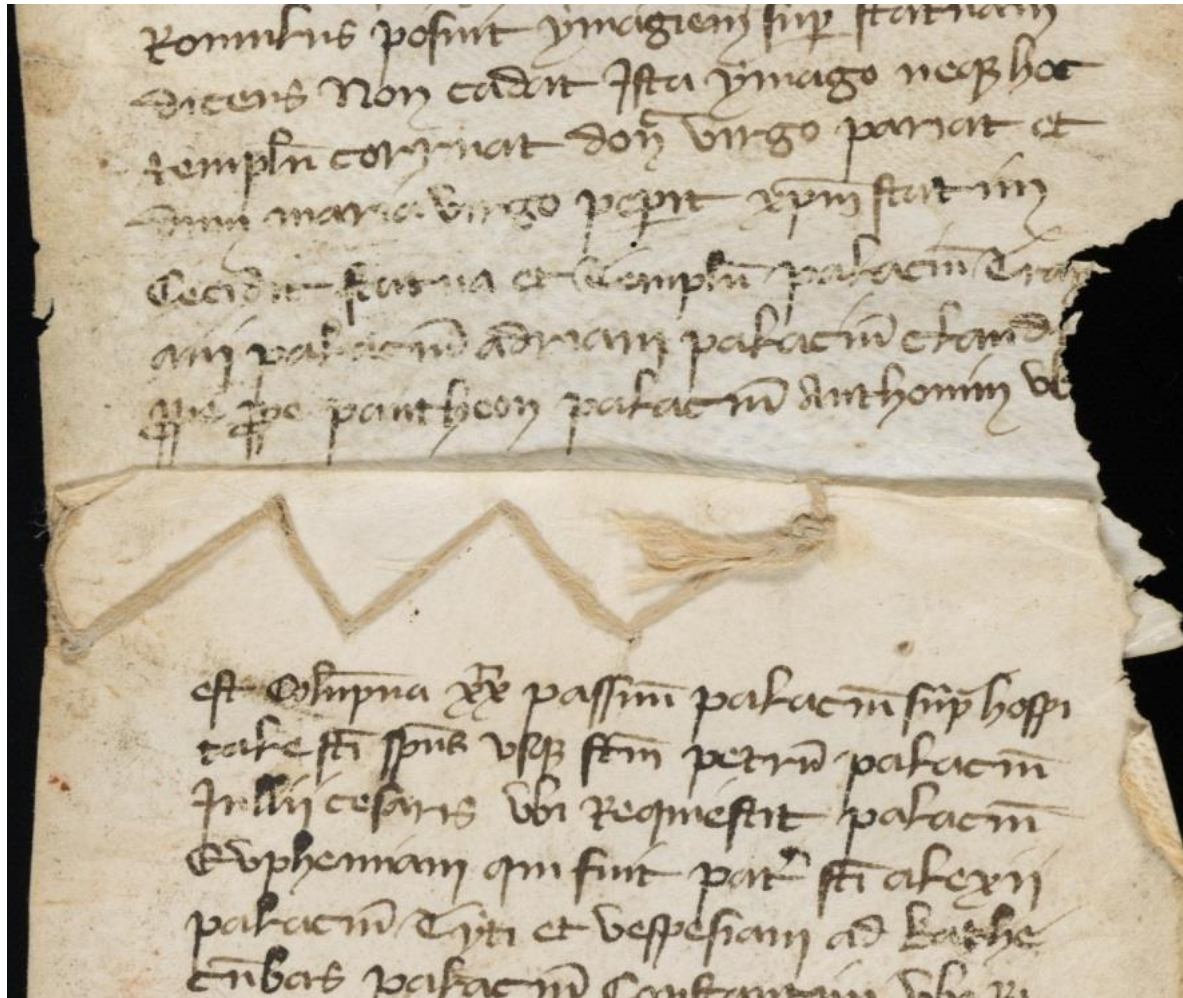 Romulus posuit ymagiem sup statuam
dicens Non cadat Ista ymago neqz hoc
templū corruat don̄ virgo pariat et
dum maria virgo peperit xp̄m statim
Cecidit statua et Templū palaciū Trai
ani palaciū adriani palaciū claudi
prope pantheon palaciū Anthonini vb
est Colūpna xxx passuū palaciū sup hospi
tale sc̄i sp̄us vsqz sc̄m petrū palaciū
Jullii cesaris vbi Requiescit palaciū
Euphemiani qui fuit pater sc̄i alexii
palaciū Tyti et vespesiani ad kathe
cūbas palaciū Constantini vbi